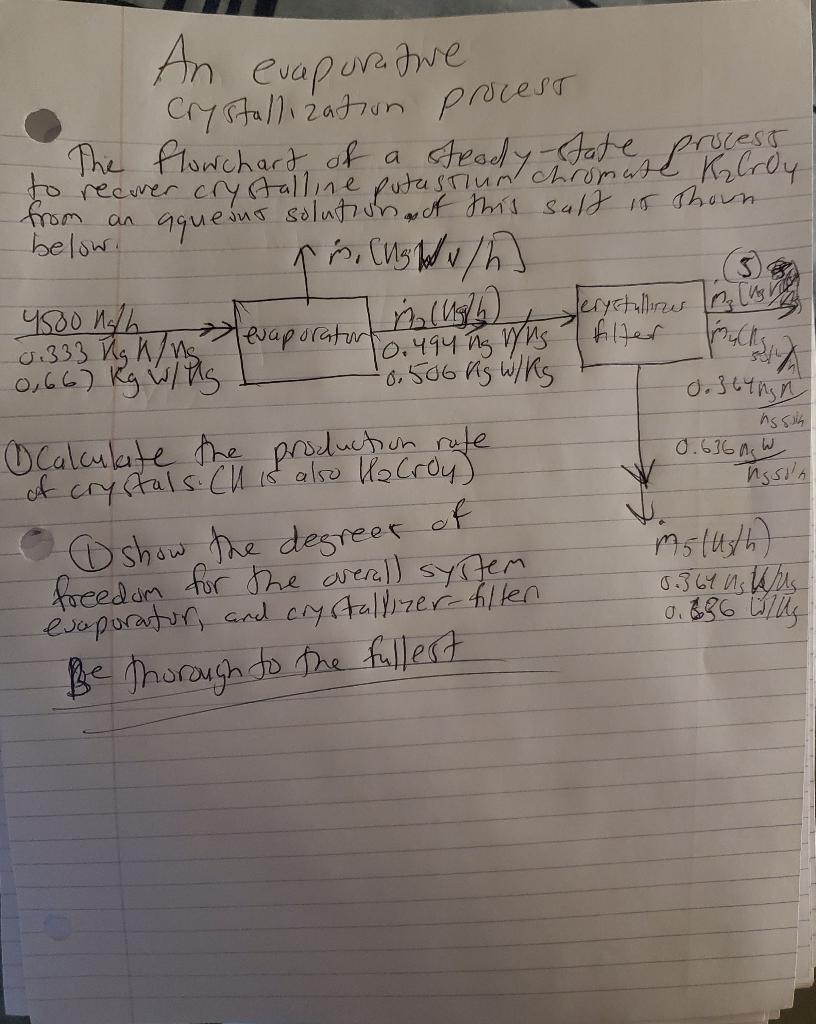 An evaporative
crystallization process
The flowchart of a steady-state process
to recover crystalline potassium chromate K2CrO4
from an aqueous solution of this salt is shown
below.
ṁ1 (kg W v/h)
(S)
4500 kg/h
0.333 kg K/kg
0.667 kg W/kg
evaporator
ṁ2 (kg/h)
0.494 kg K/kg
0.506 kg W/kg
crystallizer
filter
ṁ3 (kg
ṁ4 (kg
soln/h
0.364 kg K
kg soln
0.636 kg W
kg soln
① Calculate the production rate
of crystals. (K is also K2CrO4)
① show the degrees of
freedom for the overall system
evaporator, and crystallizer-filter
Be thorough to the fullest
ṁ5 (kg/h)
0.364 kg K/kg
0.636 W/kg